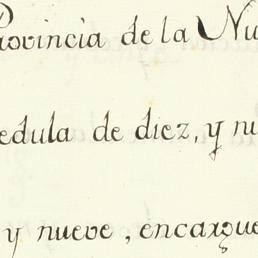 Provincia de la Nu
edula de diez, y nu
y nueve, encargue